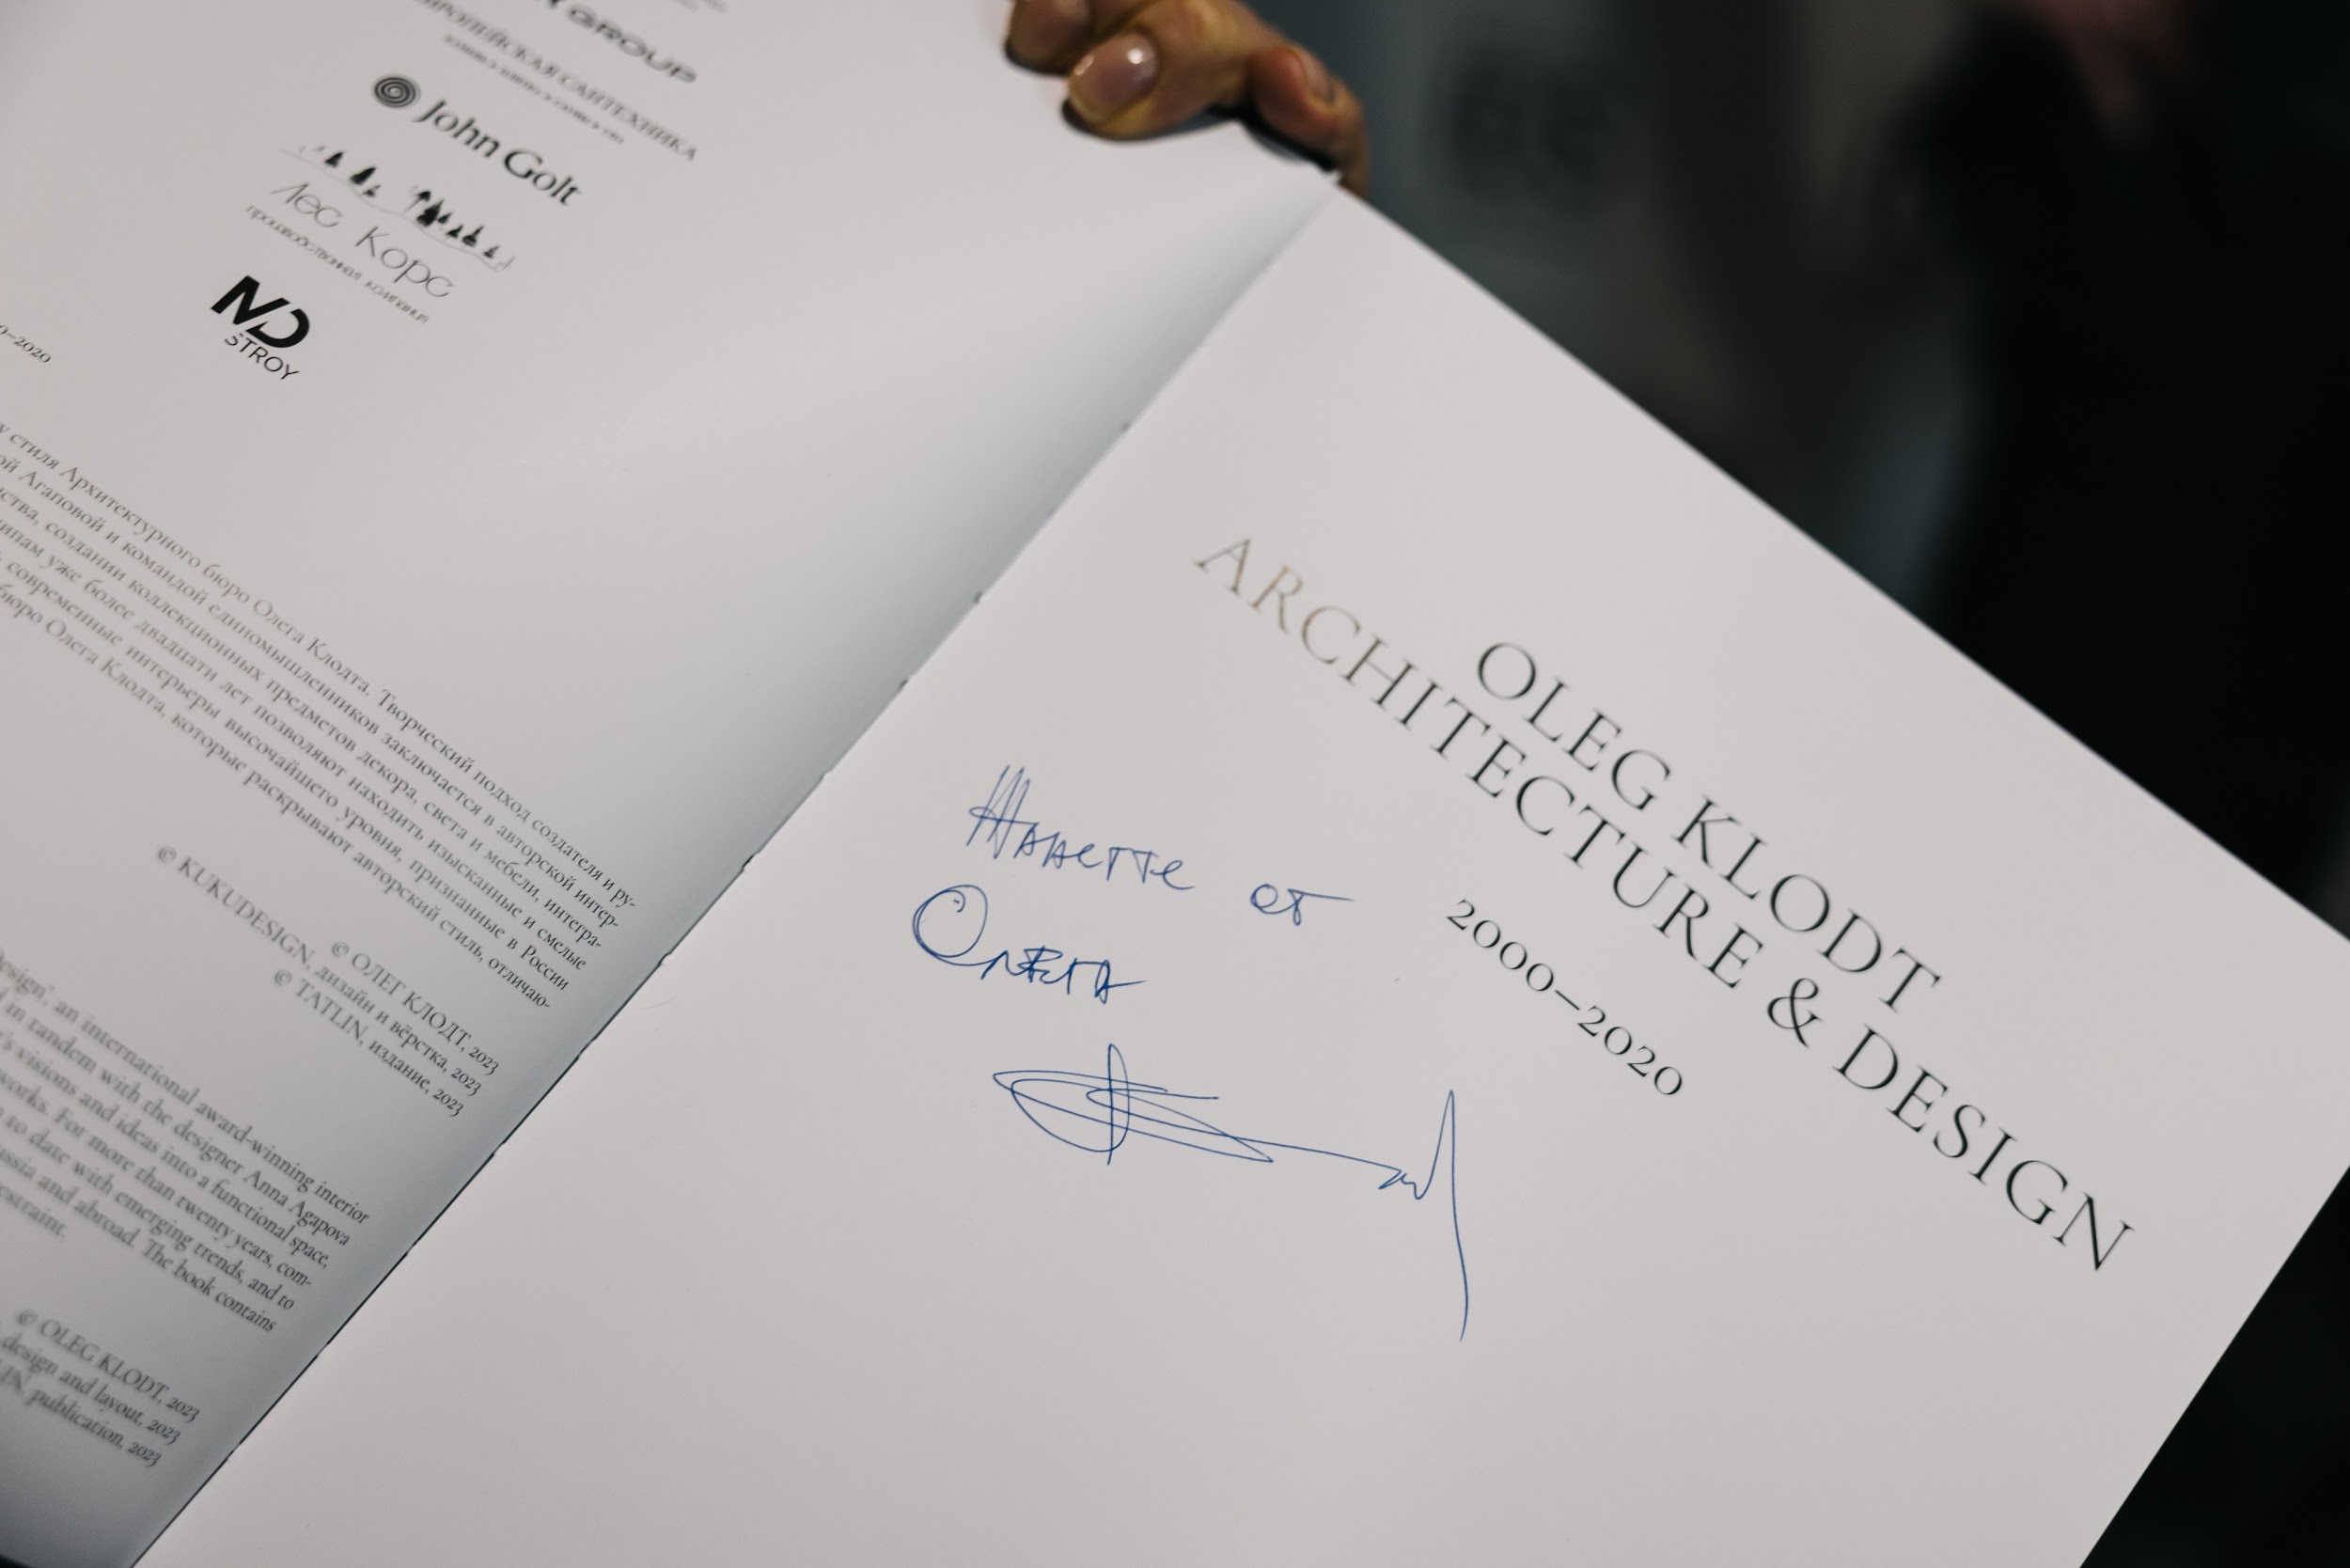 GROUP
ЕВРОПЕЙСКАЯ САНТЕХНИКА
John Golt
Лес Корс
производственная компания
MD
STROY
–2020
стиля Архитектурного бюро Олега Клодта. Творческий подход создателя и ру-
Агаповой и командой единомышленников заключается в авторской интер-
создании коллекционных предметов декора, света и мебели, интегра-
уже более двадцати лет позволяют находить изысканные и смелые
современные интерьеры высочайшего уровня, признанные в России
бюро Олега Клодта, которые раскрывают авторский стиль, отличаю-
© ОЛЕГ КЛОДТ, 2023
© KUKUDESIGN, дизайн и вёрстка, 2023
© TATLIN, издание, 2023
Design', an international award-winning interior
in tandem with the designer Anna Agapova
visions and ideas into a functional space,
works. For more than twenty years, com-
to date with emerging trends, and to
and abroad. The book contains
restraint.
© OLEG KLODT, 2023
design and layout, 2023
publication, 2023
OLEG KLODT
ARCHITECTURE & DESIGN
2000–2020
Жанетте от
Олега